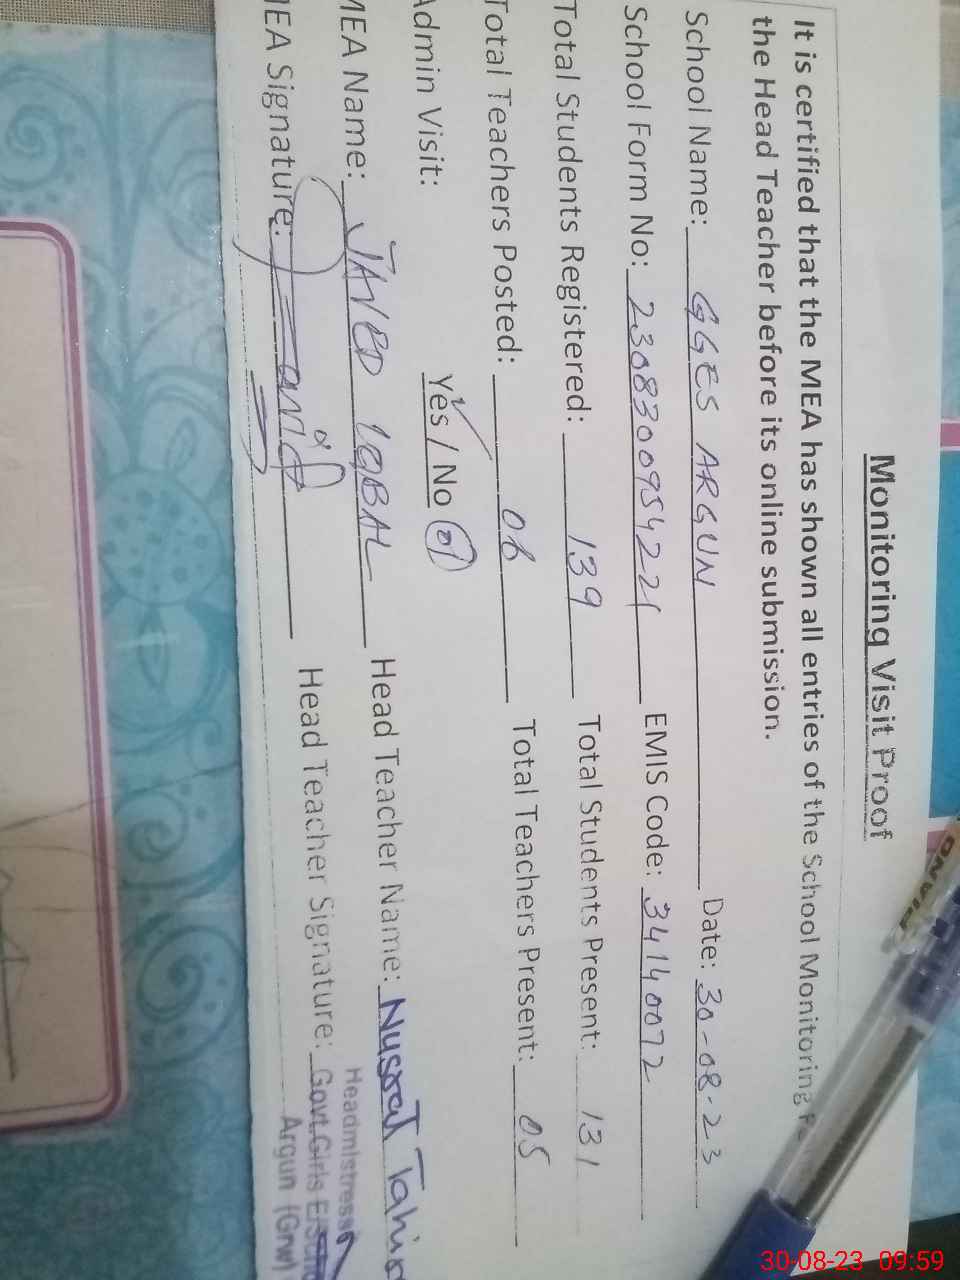 Monitoring Visit Proof
It is certified that the MEA has shown all entries of the School Monitoring
the Head Teacher before its online submission.
School Name: GGES ARGUN Date: 30-08-23
School Form No: 2308300954221 EMIS Code: 34140072
Total Students Registered: 139 Total Students Present: 131
Total Teachers Posted: 06 Total Teachers Present: 05
Admin Visit: Yes / No 01
MEA Name: JAVED IQBAL Head Teacher Name: Nusrat Tahira
MEA Signature: Head Teacher Signature:
Headmistress
Govt.Girls
Argun (Grw)
30-08-23 09:59